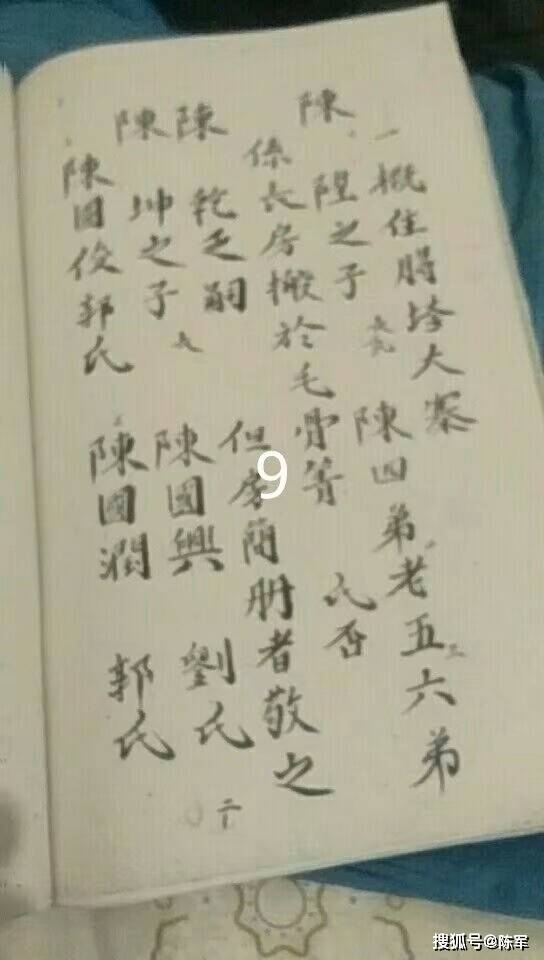 一概住 大寨
陳四弟老五六弟
陳 陞之子
氏否
係长房搬於毛骨箐
但房簡册者敬之
陳 乾乏嗣
陳國興 劉氏
陳 坤之子
陳國潤 郭氏
陳国俊郭氏
二十
9
搜狐号@陈军